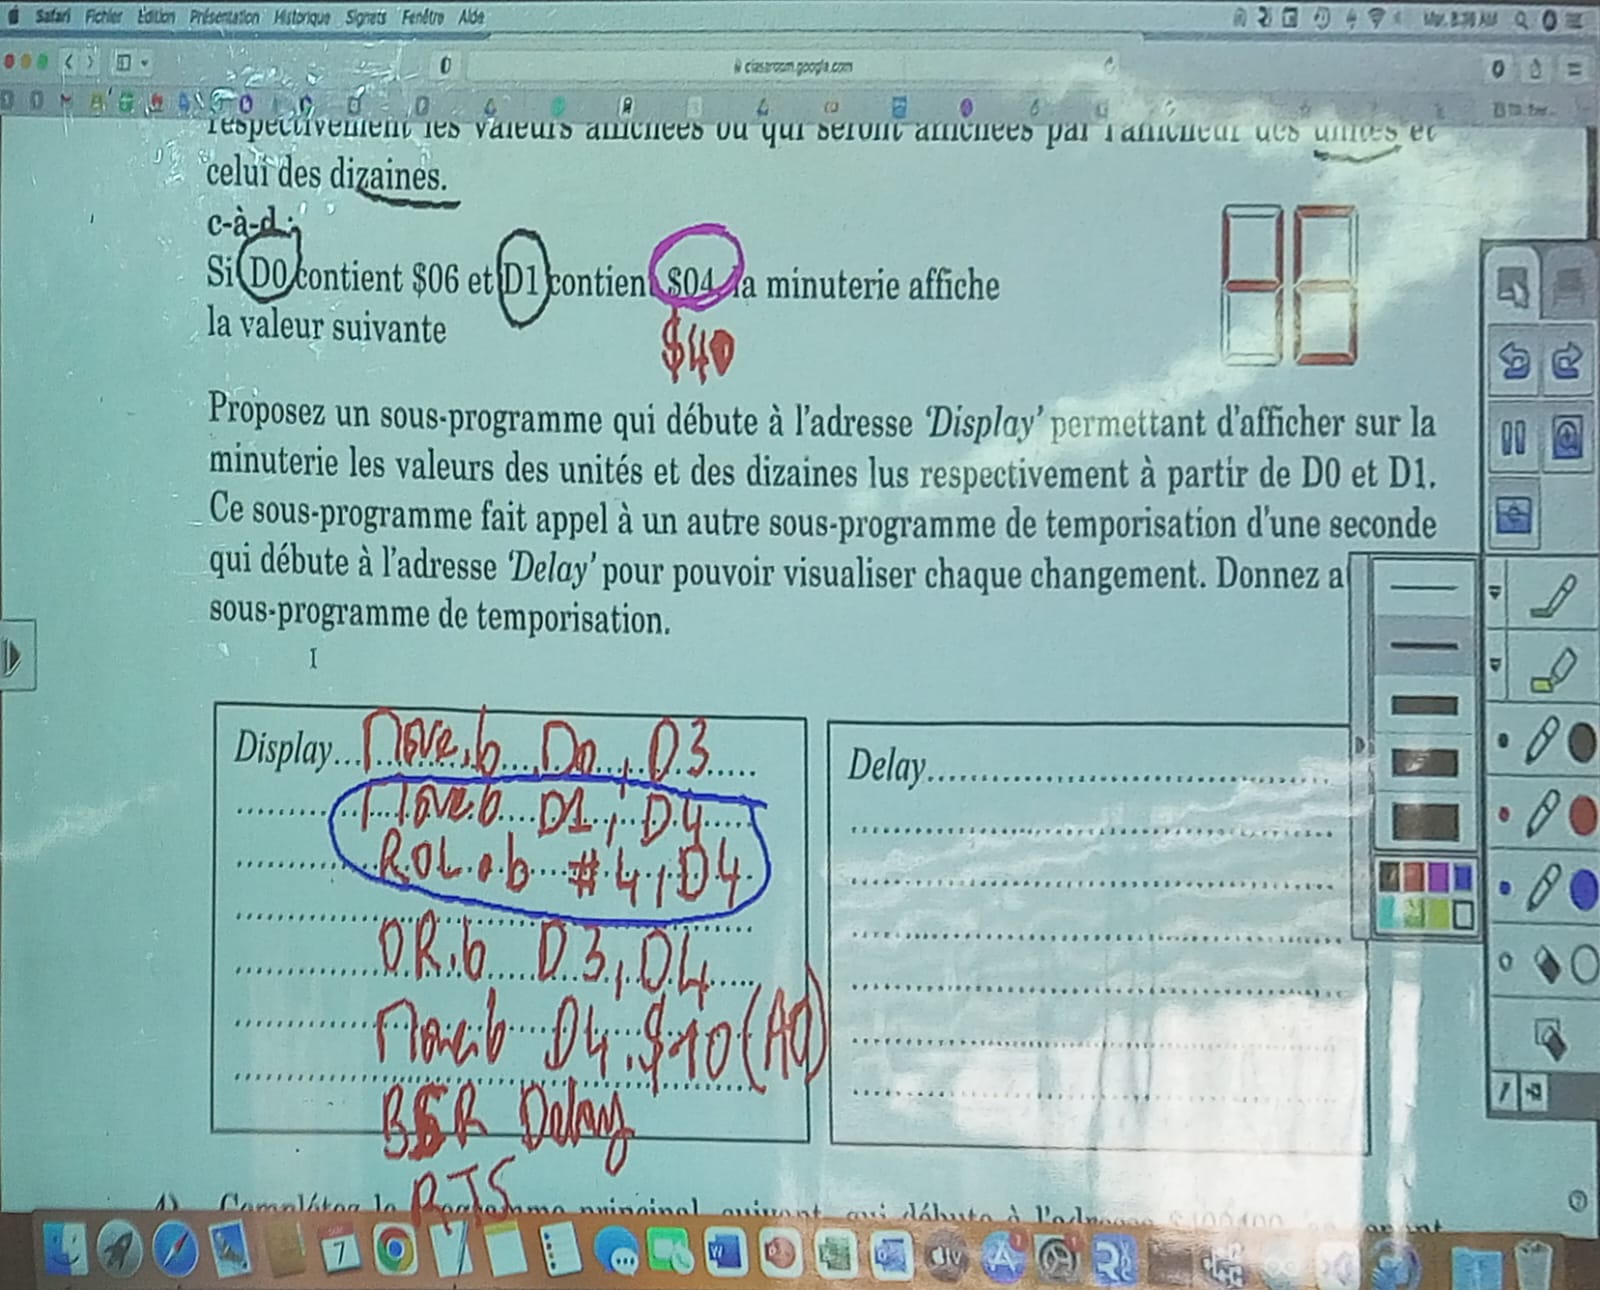 Safari Fichier Édition Présentation Historique Signets Fenêtre Aide
classroom.google.com
respectivement les valeurs affichées ou qui seront affichées par l'afficheur des unités et
celui des dizaines.
c-à-d :
Si D0 contient $06 et D1 contient $04 la minuterie affiche
la valeur suivante
$40
Proposez un sous-programme qui débute à l'adresse 'Display' permettant d'afficher sur la
minuterie les valeurs des unités et des dizaines lus respectivement à partir de D0 et D1.
Ce sous-programme fait appel à un autre sous-programme de temporisation d'une seconde
qui débute à l'adresse 'Delay' pour pouvoir visualiser chaque changement. Donnez a
sous-programme de temporisation.
Display... Move.b D0, D3
Move.b D1, D4
ROL.b #4, D4
OR.b D3, D4
Move.b D4, $10(A0)
BSR Delay
RTS
Delay
4) Complétez le programme principal suivant qui débute à l'adresse
7